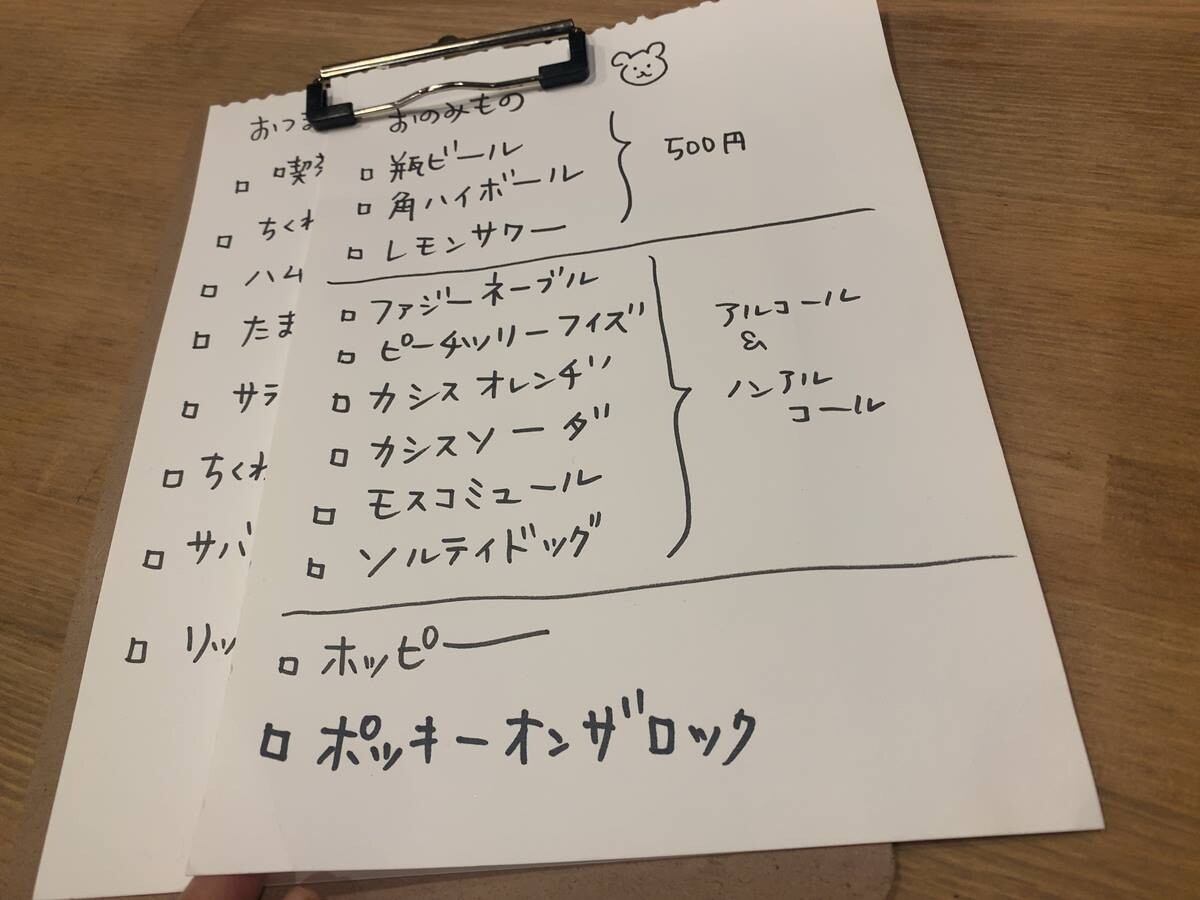 おのみもの
瓶ビール
角ハイボール
レモンサワー
500円
ファジーネーブル
ピーチツリーフィズ
カシスオレンヂ
カシスソーダ
モスコミュール
ソルティドッグ
アルコール
&
ノンアル
コール
ホッピー
ポッキーオンザロック
おつま
喫
ちくわ
ハム
たま
サラ
ちくわ
サバ
リッ